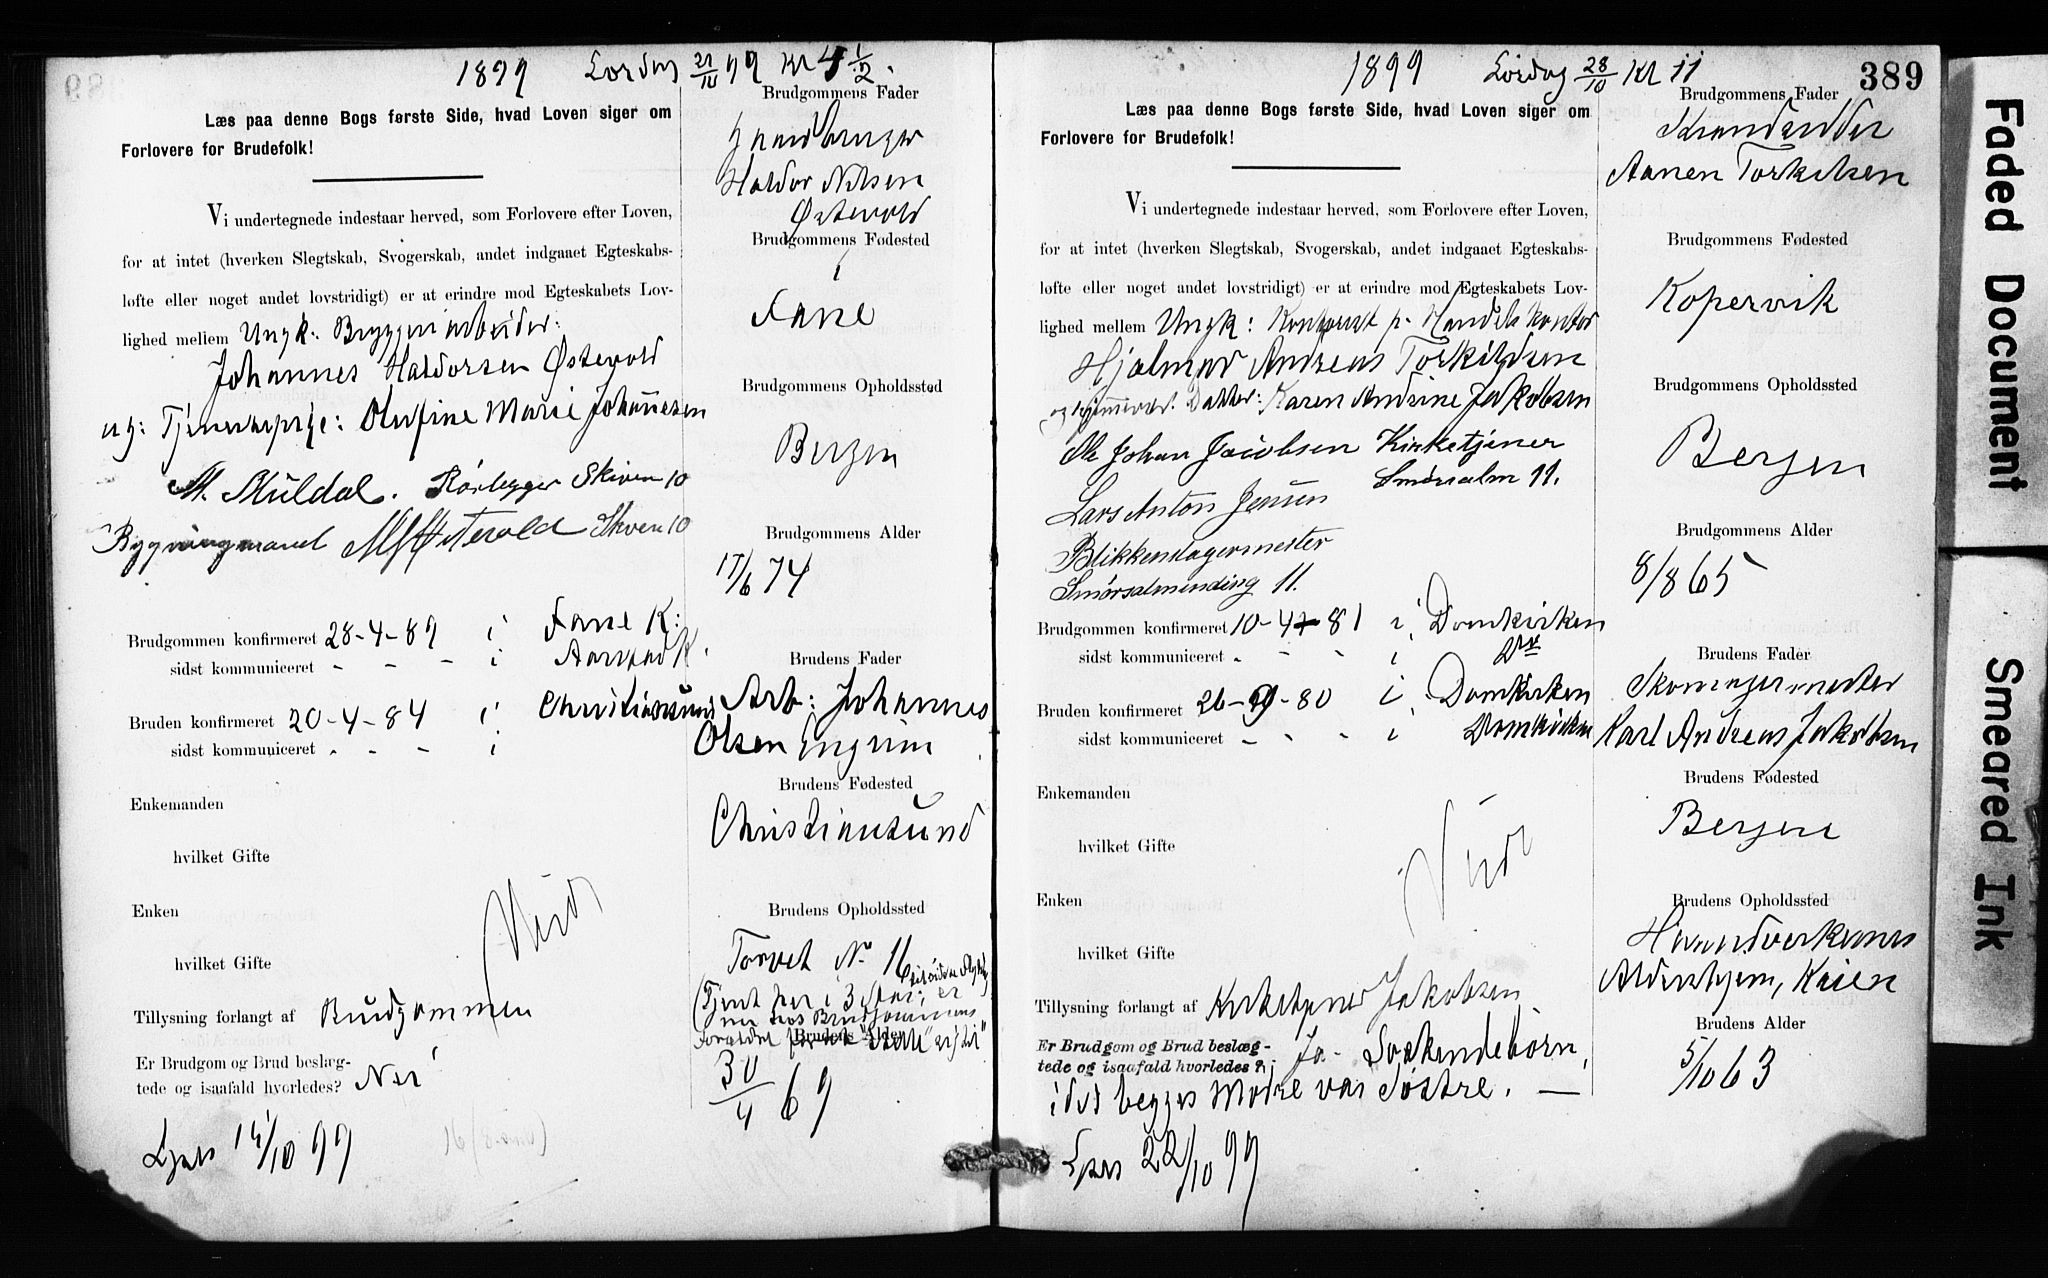 1899 Lørdag 21/10 99 Kl 4 1/2.
Læs paa denne Bogs første Side, hvad Loven siger om
Forlovere for Brudefolk!
Vi undertegnede indestaar herved, som Forlovere efter Loven,
for at intet (hverken Slegtskab, Svogerskab, andet indgaaet Egteskabs-
løfte eller noget andet lovstridigt) er at erindre mod Egteskabets Lov-
lighed mellem Ungk: Bryggeriarbeider:
Johannes Haldorsen Østevold
og: Tjenestepige: Olufine Marie Johannesen
M. Muldal. Rørlegger Skiven 10
Bygningsmand Østevold Skiven 10
Brudgommen konfirmeret 28-4-89 i Fane K:
sidst kommuniceret - - - i Aarstad K.
Bruden konfirmeret 20-4-84 i Christiansund
sidst kommuniceret - - - i
Enkemanden
hvilket Gifte
Enken
hvilket Gifte
Tillysning forlangt af Brudgommen
Er Brudgom og Brud beslæg-
tede og isaafald hvorledes? Nei
Lyst 14/10 99
Brudgommens Fader
Gaardbruger
Haldor Nilsen
Østevold
Brudgommens Fødested
i
Fane
Brudgommens Opholdssted
Bergen
Brudgommens Alder
17/6 74
Brudens Fader
Arb: Johannes
Olsen Engrim
Brudens Fødested
Christiansund
Brudens Opholdssted
Torvet No 16
(Tjent her i 3 Aar; er
nu hos Brudgommens
Forældre
Brudens Alder
30/4 69
1899 Lørdag 28/10 Kl 11
389
Læs paa denne Bogs første Side, hvad Loven siger om
Forlovere for Brudefolk!
Vi undertegnede indestaar herved, som Forlovere efter Loven,
for at intet (hverken Slegtskab, Svogerskab, andet indgaaet Egteskabs-
løfte eller noget andet lovstridigt) er at erindre mod Egteskabets Lov-
lighed mellem Ungk: Kontorist p. Handelskontor
Hjalmar Andreas Torkildsen
og hjemmevær. Datter: Karen Andrine Jakobsen
Ole Johan Jacobsen Kirketjener
Smørsalm 11.
Lars Anton Jensen
Blikkenslagermester
Smørsalmending 11.
Brudgommen konfirmeret 10-4-81 i Domkirken
sidst kommuniceret - - - i
Bruden konfirmeret 26-9-80 i Domkirken
sidst kommuniceret - - - i Domkirken
Enkemanden
hvilket Gifte
Enken
hvilket Gifte
Tillysning forlangt af Kirketjener Jakobsen
Er Brudgom og Brud beslæg-
tede og isaafald hvorledes? Ja - Søskendebørn,
idet begges Mødre var Søstre. —
Lyst 22/10 99
Brudgommens Fader
Strandsidder
Aanen Torkilsen
Brudgommens Fødested
Kopervik
Brudgommens Opholdssted
Bergen
Brudgommens Alder
8/8 65
Brudens Fader
Skomagermester
Karl Andreas Jakobsen
Brudens Fødested
Bergen
Brudens Opholdssted
Haandverkernes
Aldershjem, Kaien
Brudens Alder
5/10 63
Faded Document
Smeared Ink